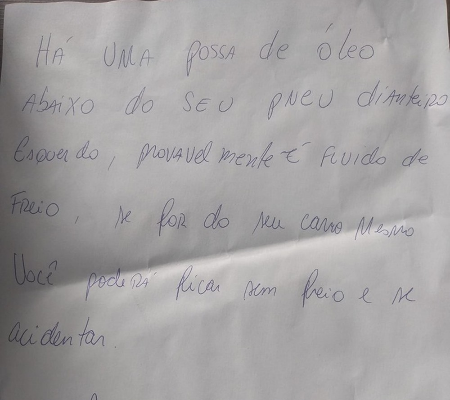 HÁ UMA POSSA de óleo
ABAIXO do SEU PNEU diANTEIRO
Esquerdo, PROVAVELmente É FLUIDO de
FREIO, se FOR do seu carro MESMO
Você PODERÁ ficar sem freio e se
acidentar.